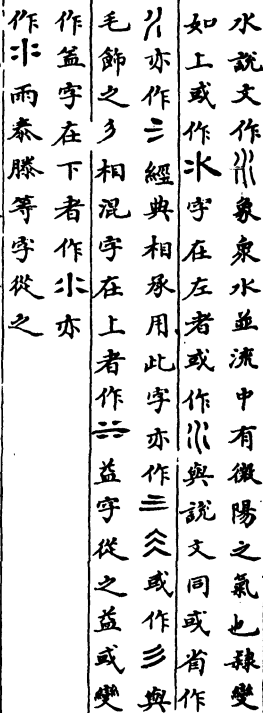 水說文作象衆水並流中有微陽之氣也隸變
如上或作氺字在左者或作與說文同或省作
亦作經典相承用此字亦作三或作彡與
毛飾之彡相混字在上者作益字從之益或變
作盖字在下者作氺亦
作雨泰滕等字從之